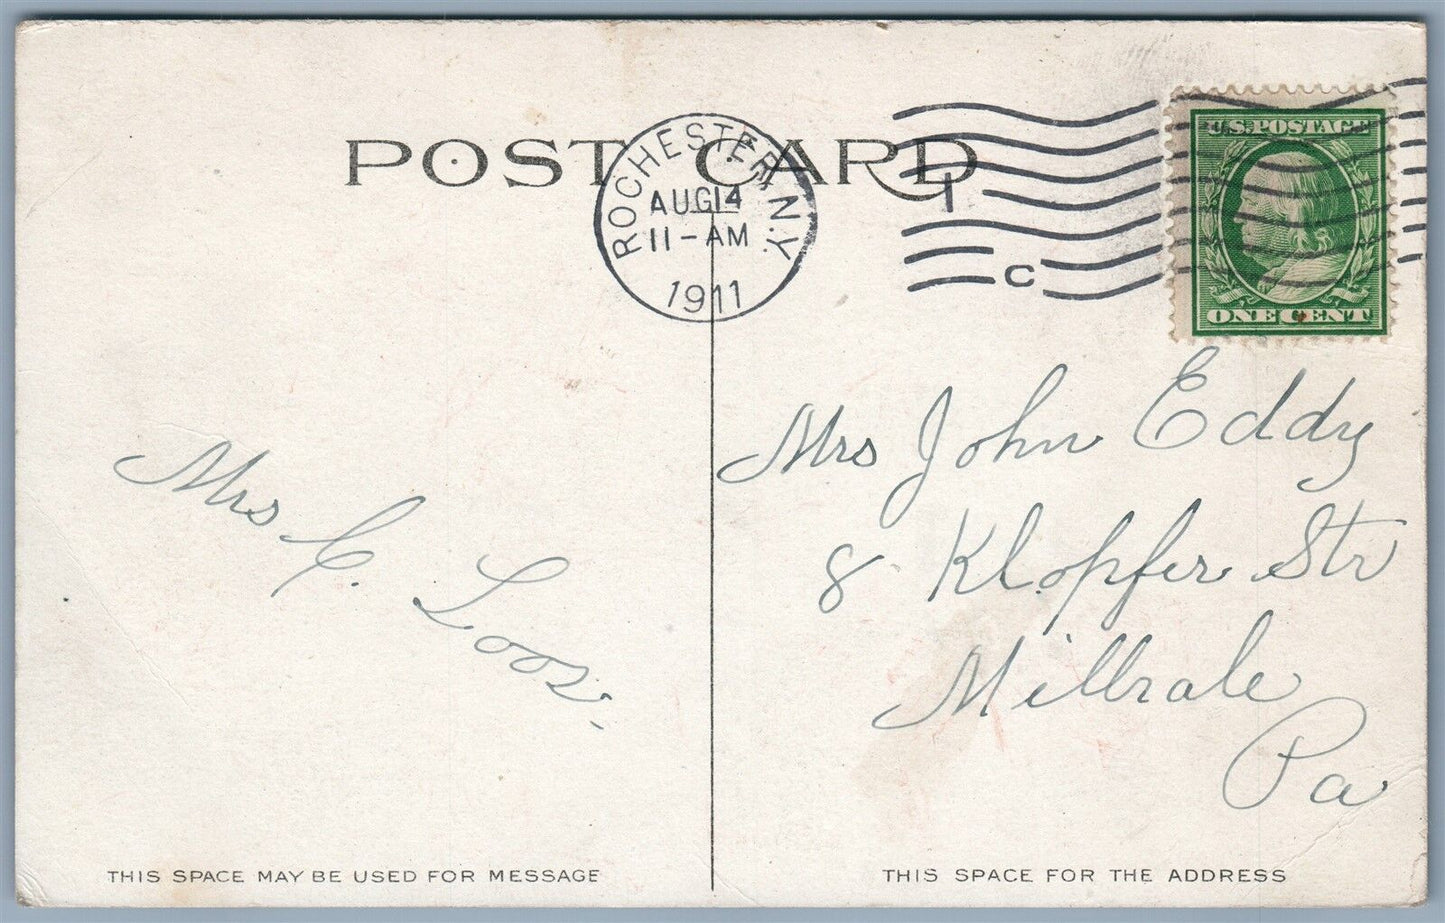 POST CARD
ROCHESTER, N.Y.
AUG 14
11-AM
1911
1
C
U.S. POSTAGE
ONE CENT
Mrs C. Loos,
Mrs John Eddy
8 Klopfer Str
Millvale
Pa
THIS SPACE MAY BE USED FOR MESSAGE
THIS SPACE FOR THE ADDRESS